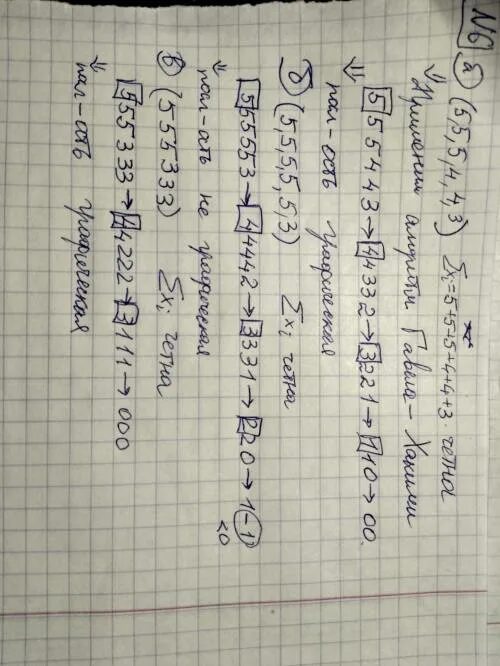 N6
а) (5,5,5,4,4,3) Σxᵢ=5+5+5+4+4+3 - четна
⇒ Применим алгоритм Гавела-Хакими
5 5 5 4 4 3 → 4 4 3 3 2 → 3 2 2 1 → 1 1 0 → 0 0.
⇒ посл-ость графическая
б) (5,5,5,5,5,3) Σxᵢ четна
5 5 5 5 5 3 → 4 4 4 4 2 → 3 3 3 1 → 2 2 0 → 1 -1 <0
⇒ посл-ость не графическая
в) (5 5 5 3 3 3) Σxᵢ четна
5 5 5 3 3 3 → 4 4 2 2 2 → 3 1 1 1 → 0 0 0
⇒ посл-ость графическая